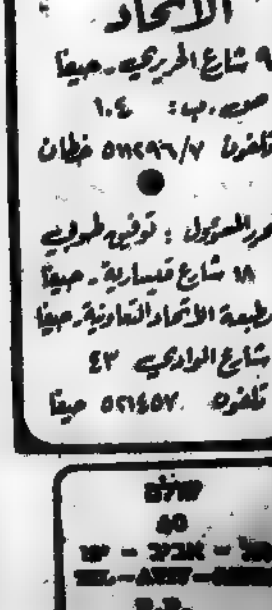 الاتحاد
٩ شارع الحريري - حيفا
ص. ب: ١٠٤
تلفون ٥١١٢٩٦/٧ خطان
توفيق طوبي
١٨ شارع قيسارية - حيفا
مطبعة الاتحاد التعاونية - حيفا
شارع الوادي ٤٣
تلفون ٥٢١٤٥٧ حيفا
שולם
תל - אביב - יפו